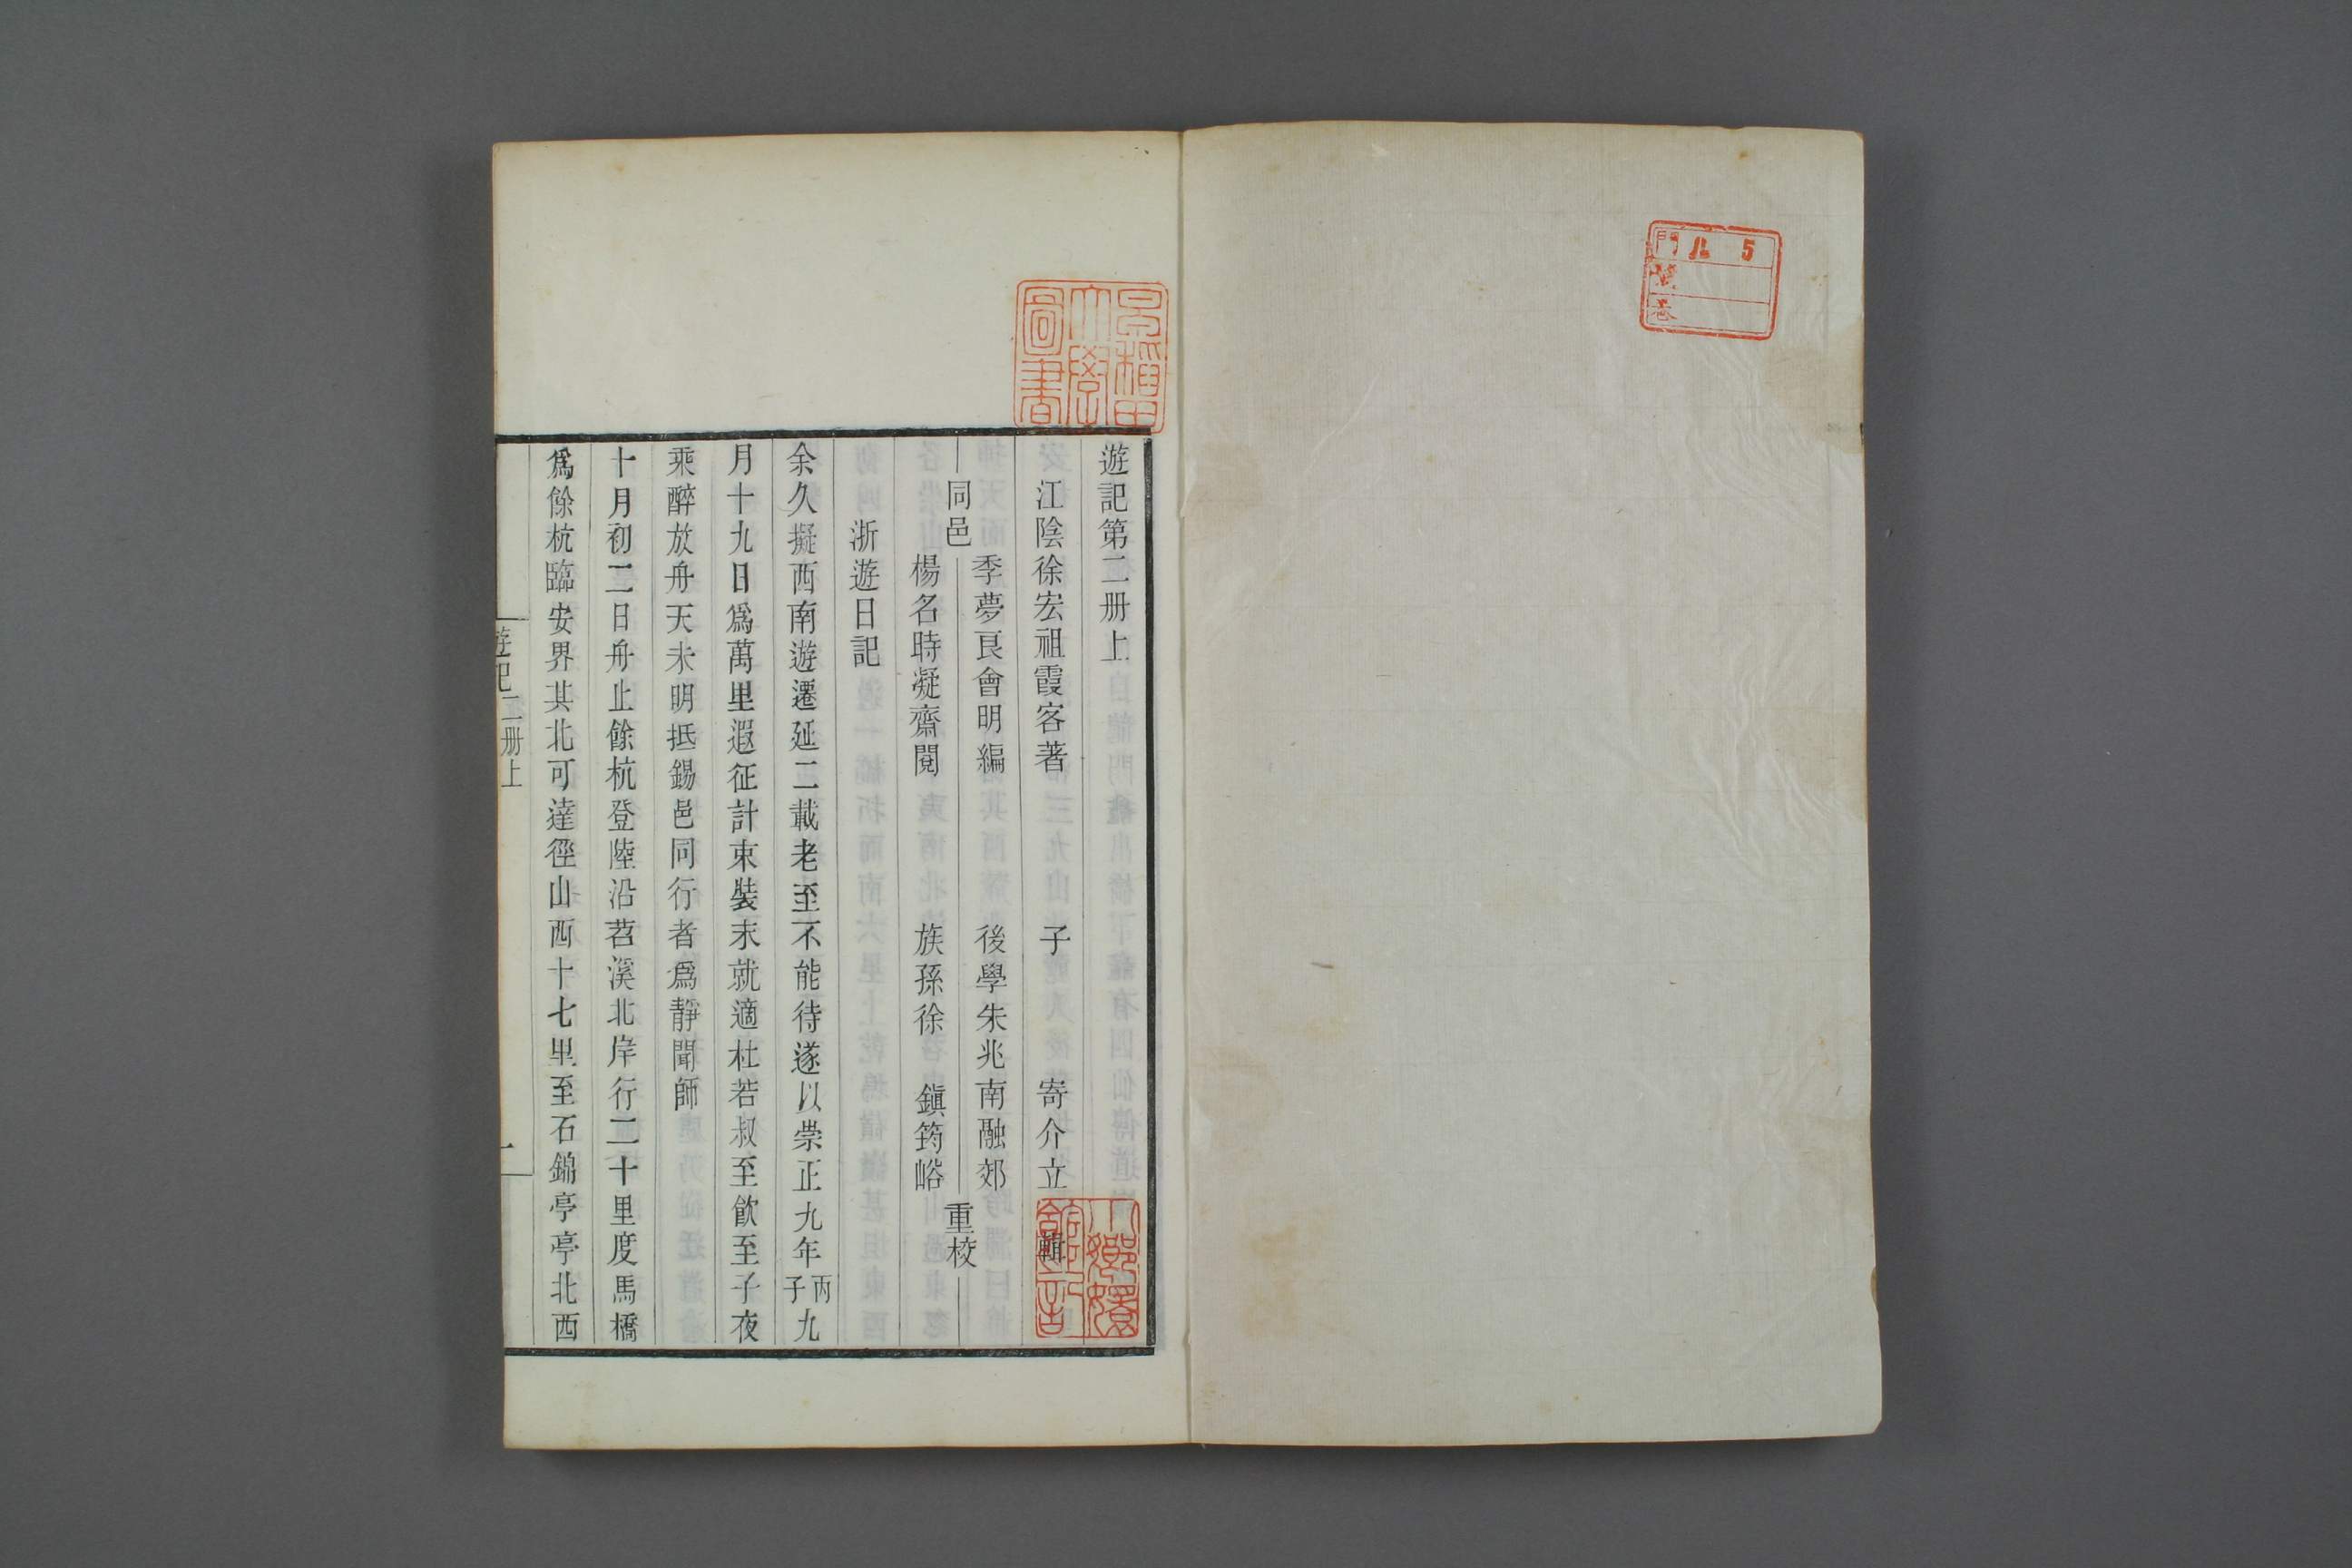 門 ル 5
號
卷
早稲田
大學
圖書
遊記第二册上
江陰徐宏祖霞客著 子 寄介立輯
同邑
季夢良會明編 後學朱兆南融郊
楊名時凝齋閱 族孫徐 鎭筠峪
重校
浙遊日記
余久擬西南遊遷延二載老至不能待遂以崇正九年丙子九
月十九日爲萬里遐征計束裝末就適杜若叔至飮至子夜
乘醉放舟天未明抵錫邑同行者爲靜聞師
十月初二日舟止餘杭登陸沿苕溪北岸行二十里度馬橋
爲餘杭臨安界其北可達徑山西十七里至石錦亭亭北西
遊記二册上
一